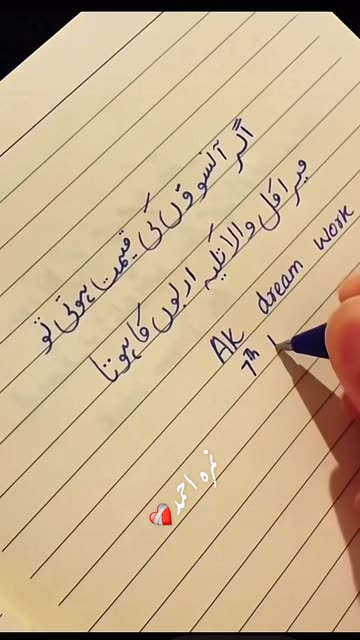 اگر آنسوؤں کی قیمت ہوتی تو
میرا کل والا تکیہ اربوں کا ہوتا
AK dream work
7th
نمرہ احمد